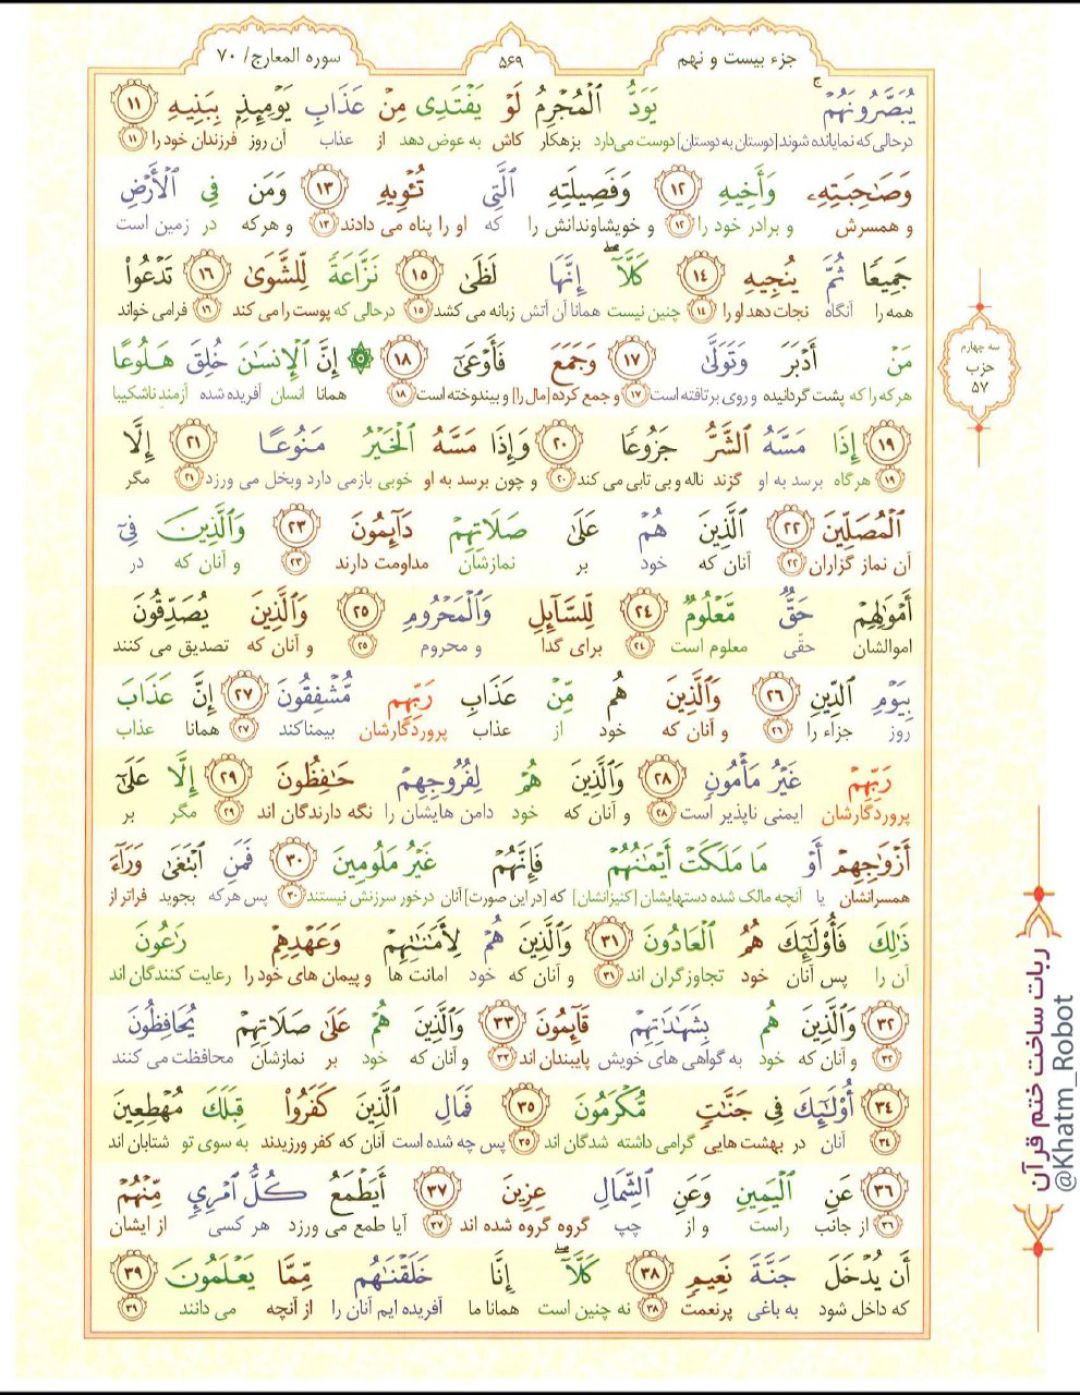 جزء بیست و نهم
۵۶۹
سوره المعارج/ ۷۰
يُبَصَّرُونَهُمْ ۚ يَوَدُّ الْمُجْرِمُ لَوْ يَفْتَدِى مِنْ عَذَابِ يَوْمِئِذٍ بِبَنِيهِ ۱۱
درحالی که نمایانده شوند [دوستان به دوستان] دوست می‌دارد بزهکار کاش به عوض دهد از عذاب آن روز فرزندان خود را ۱۱
وَصَٰحِبَتِهِۦ وَأَخِيهِ ۱۲ وَفَصِيلَتِهِ الَّتِى تُـْٔوِيهِ ۱۳ وَمَن فِى الْأَرْضِ
و همسرش و برادر خود را ۱۲ و خویشاوندانش را که او را پناه می دادند ۱۳ و هرکه در زمین است
جَمِيعًا ثُمَّ يُنجِيهِ ۱۴ كَلَّآ ۖ إِنَّهَا لَظَىٰ ۱۵ نَزَّاعَةً لِّلشَّوَىٰ ۱۶ تَدْعُوا۟
همه را آنگاه نجات دهد او را ۱۴ چنین نیست همانا آن آتش زبانه می کشد ۱۵ درحالی که پوست را می کند ۱۶ فرامی خواند
مَنْ أَدْبَرَ وَتَوَلَّىٰ ۱۷ وَجَمَعَ فَأَوْعَىٰٓ ۱۸ إِنَّ الْإِنسَٰنَ خُلِقَ هَلُوعًا
هرکه را که پشت گردانیده و روی برتافته است ۱۷ و جمع کرده [مال را] و بیندوخته است ۱۸ همانا انسان آفریده شده آزمند ناشکیبا
۱۹ إِذَا مَسَّهُ الشَّرُّ جَزُوعًا ۲۰ وَإِذَا مَسَّهُ الْخَيْرُ مَنُوعًا ۲۱ إِلَّا
۱۹ هرگاه برسد به او گزند ناله و بی تابی می کند ۲۰ و چون برسد به او خوبی بازمی دارد وبخل می ورزد ۲۱ مگر
الْمُصَلِّينَ ۲۲ الَّذِينَ هُمْ عَلَىٰ صَلَاتِهِمْ دَآئِمُونَ ۲۳ وَالَّذِينَ فِىٓ
آن نماز گزاران ۲۲ آنان که خود بر نمازشان مداومت دارند ۲۳ و آنان که در
أَمْوَٰلِهِمْ حَقٌّ مَّعْلُومٌ ۲۴ لِّلسَّآئِلِ وَالْمَحْرُومِ ۲۵ وَالَّذِينَ يُصَدِّقُونَ
اموالشان حقّی معلوم است ۲۴ برای گدا و محروم ۲۵ و آنان که تصدیق می کنند
بِيَوْمِ الدِّينِ ۲۶ وَالَّذِينَ هُم مِّنْ عَذَابِ رَبِّهِم مُّشْفِقُونَ ۲۷ إِنَّ عَذَابَ
روز جزاء را ۲۶ و آنان که خود از عذاب پروردگارشان بیمناکند ۲۷ همانا عذاب
رَبِّهِمْ غَيْرُ مَأْمُونٍ ۲۸ وَالَّذِينَ هُمْ لِفُرُوجِهِمْ حَٰفِظُونَ ۲۹ إِلَّا عَلَىٰٓ
پروردگارشان ایمنی ناپذیر است ۲۸ و آنان که خود دامن هایشان را نگه دارندگان اند ۲۹ مگر بر
أَزْوَٰجِهِمْ أَوْ مَا مَلَكَتْ أَيْمَٰنُهُمْ فَإِنَّهُمْ غَيْرُ مَلُومِينَ ۳۰ فَمَنِ ابْتَغَىٰ وَرَآءَ
همسرانشان یا آنچه مالک شده دستهایشان [کنیزانشان] که [در این صورت] آنان درخور سرزنش نیستند ۳۰ پس هرکه بجوید فراتر از
ذَٰلِكَ فَأُو۟لَٰٓئِكَ هُمُ الْعَادُونَ ۳۱ وَالَّذِينَ هُمْ لِأَمَٰنَٰتِهِمْ وَعَهْدِهِمْ رَٰعُونَ
آن را پس آنان خود تجاوزگران اند ۳۱ و آنان که خود امانت ها و پیمان های خود را رعایت کنندگان اند
۳۲ وَالَّذِينَ هُم بِشَهَٰدَٰتِهِمْ قَآئِمُونَ ۳۳ وَالَّذِينَ هُمْ عَلَىٰ صَلَاتِهِمْ يُحَافِظُونَ
۳۲ و آنان که خود به گواهی های خویش پایبندان اند ۳۳ و آنان که خود بر نمازشان محافظت می کنند
۳۴ أُو۟لَٰٓئِكَ فِى جَنَّٰتٍ مُّكْرَمُونَ ۳۵ فَمَالِ الَّذِينَ كَفَرُوا۟ قِبَلَكَ مُهْطِعِينَ
۳۴ آنان در بهشت هایی گرامی داشته شدگان اند ۳۵ پس چه شده است آنان که کفر ورزیدند به سوی تو شتابان اند
۳۶ عَنِ الْيَمِينِ وَعَنِ الشِّمَالِ عِزِينَ ۳۷ أَيَطْمَعُ كُلُّ امْرِئٍ مِّنْهُمْ
۳۶ از جانب راست و از چپ گروه گروه شده اند ۳۷ آیا طمع می ورزد هر کسی از ایشان
أَن يُدْخَلَ جَنَّةَ نَعِيمٍ ۳۸ كَلَّآ ۖ إِنَّا خَلَقْنَٰهُم مِّمَّا يَعْلَمُونَ ۳۹
که داخل شود به باغی پرنعمت ۳۸ نه چنین است همانا ما آفریده ایم آنان را از آنچه می دانند ۳۹
سه چهارم
حزب
۵۷
ربات ساخت ختم قرآن
@Khatm_Robot